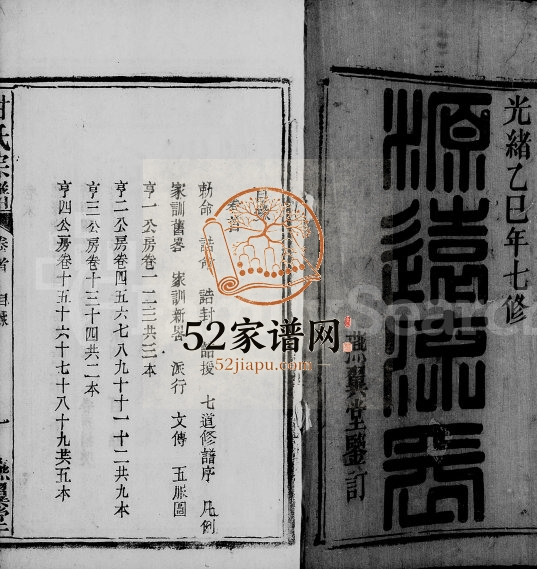 光緒乙巳年七修
源遠流長
燕翼堂鑒訂
目錄
卷首
勅命 誥命 誥封 誥授 七道修譜序 凡例
家訓舊畧 家訓新畧 派行 文傳 五服圖
亨一公房卷一二三共三本
亨二公房卷四五六七八九十十一十二共九本
亨三公房卷十三十四共二本
亨四公房卷十五十六十七十八十九共五本
氏宗譜
卷首 目錄
一
燕翼堂
52家谱网
52jiapu.com